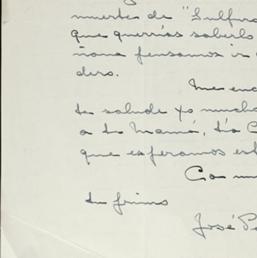 muerte de "Sulfur
que querías saberlo
ñana pensamos ir
dero.
Me enc
te salude yo mucho
a tu Mamá, tía C
que esperamos est
Con mu
tu primo
José Pe